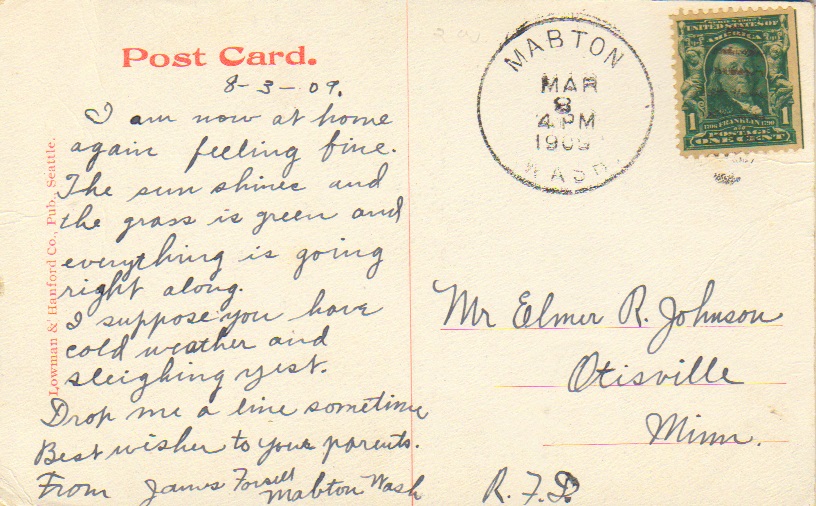 Post Card.
8-3-09.
I am now at home
again feeling fine.
The sun shines and
the grass is green and
everything is going
right along.
I suppose you have
cold weather and
sleighing yest.
Drop me a line sometime
Best wishes to your parents.
From James Forsell
Mabton Wash
Lowman & Hanford Co., Pub., Seattle.
MABTON
MAR
8
4 PM
1909
WASH.
SERIES 1902
UNITED STATES OF
AMERICA
1 1706 FRANKLIN 1790 1
POSTAGE
ONE CENT
Mr Elmer R. Johnson
Otisville
Minn.
R.F.D.